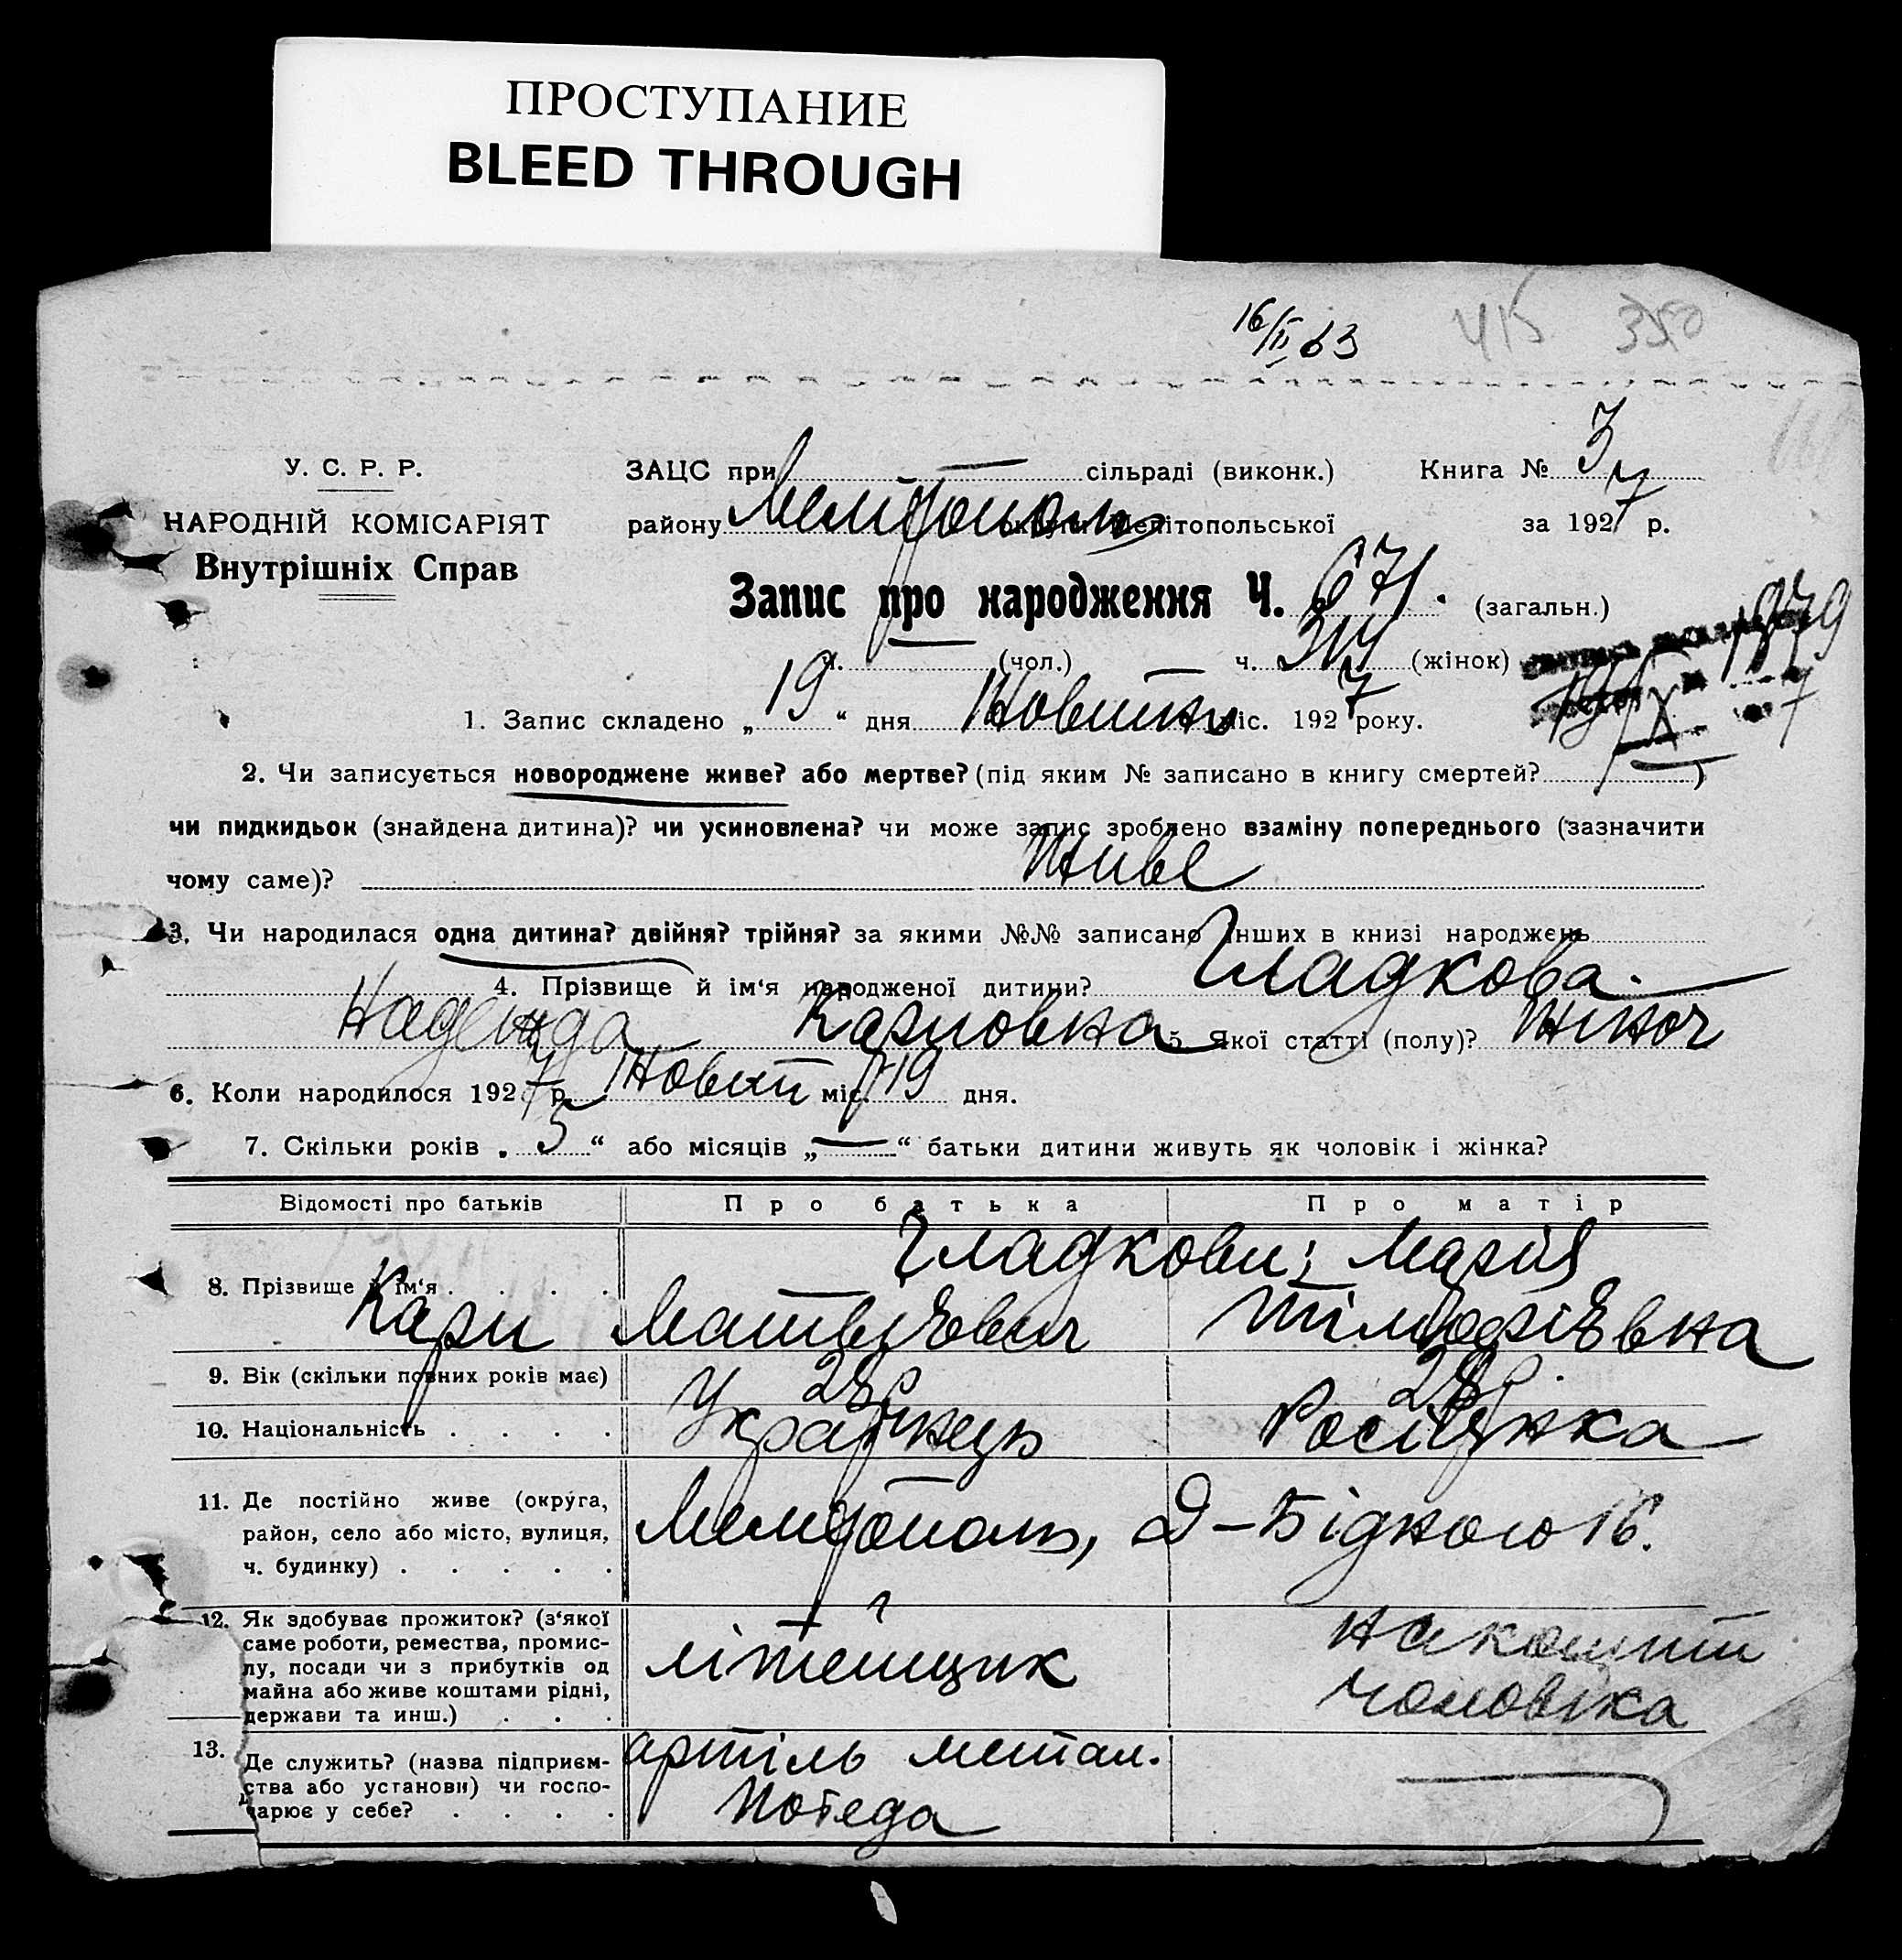 ПРОСТУПАНИЕ
BLEED THROUGH
16/II 63
415 350
У. С. Р. Р.
НАРОДНІЙ КОМІСАРІЯТ
Внутрішніх Справ
ЗАЦС при — сільраді (виконк.) Книга № 3
району Мелітополь округи Мелітопольської за 1927 р.
Запис про народження Ч. 671. (загальн.)
ч. (чол.) ч. 314 (жінок)
1. Запис складено „ 19 “ дня Жовтня міс. 1927 року.
2. Чи записується новороджене живе? або мертве? (під яким № записано в книгу смертей? )
чи пидкидьок (знайдена дитина)? чи усиновлена? чи може запис зроблено взаміну попереднього (зазначити
чому саме)? Живе
3. Чи народилася одна дитина? двійня? трійня? за якими №№ записано інших в книзі народжень
4. Прізвище й ім‘я народженої дитини? Гладкова.
Надежда Карповна 5. Якої статті (полу)? Жіноч
6. Коли народилося 1927 р. Жовт міс. 19 дня.
7. Скільки років „ 5 “ або місяців „ — “ батьки дитини живуть як чоловік і жінка?
Відомості про батьків Про батька Про матір
8. Прізвище й ім‘я . . . . Гладкови; Марія
Карп Матвієвич Тімофієвна
9. Вік (скільки повних років має) 28р 28р.
10. Національність . . . . Українець Росіянка
11. Де постійно живе (округа,
район, село або місто, вулиця,
ч. будинку) . . . . .
Мелітополь, Д-Бідного 16.
12. Як здобуває прожиток? (з‘якої
саме роботи, ремества, промис-
лу, посади чи з прибутків од
майна або живе коштами рідні,
держави та инш.) . . .
літейщик
на кошти
чоловіка
13. Де служить? (назва підприєм-
ства або установи) чи госпо-
дарює у себе? . . . .
артіль метал.
Победа